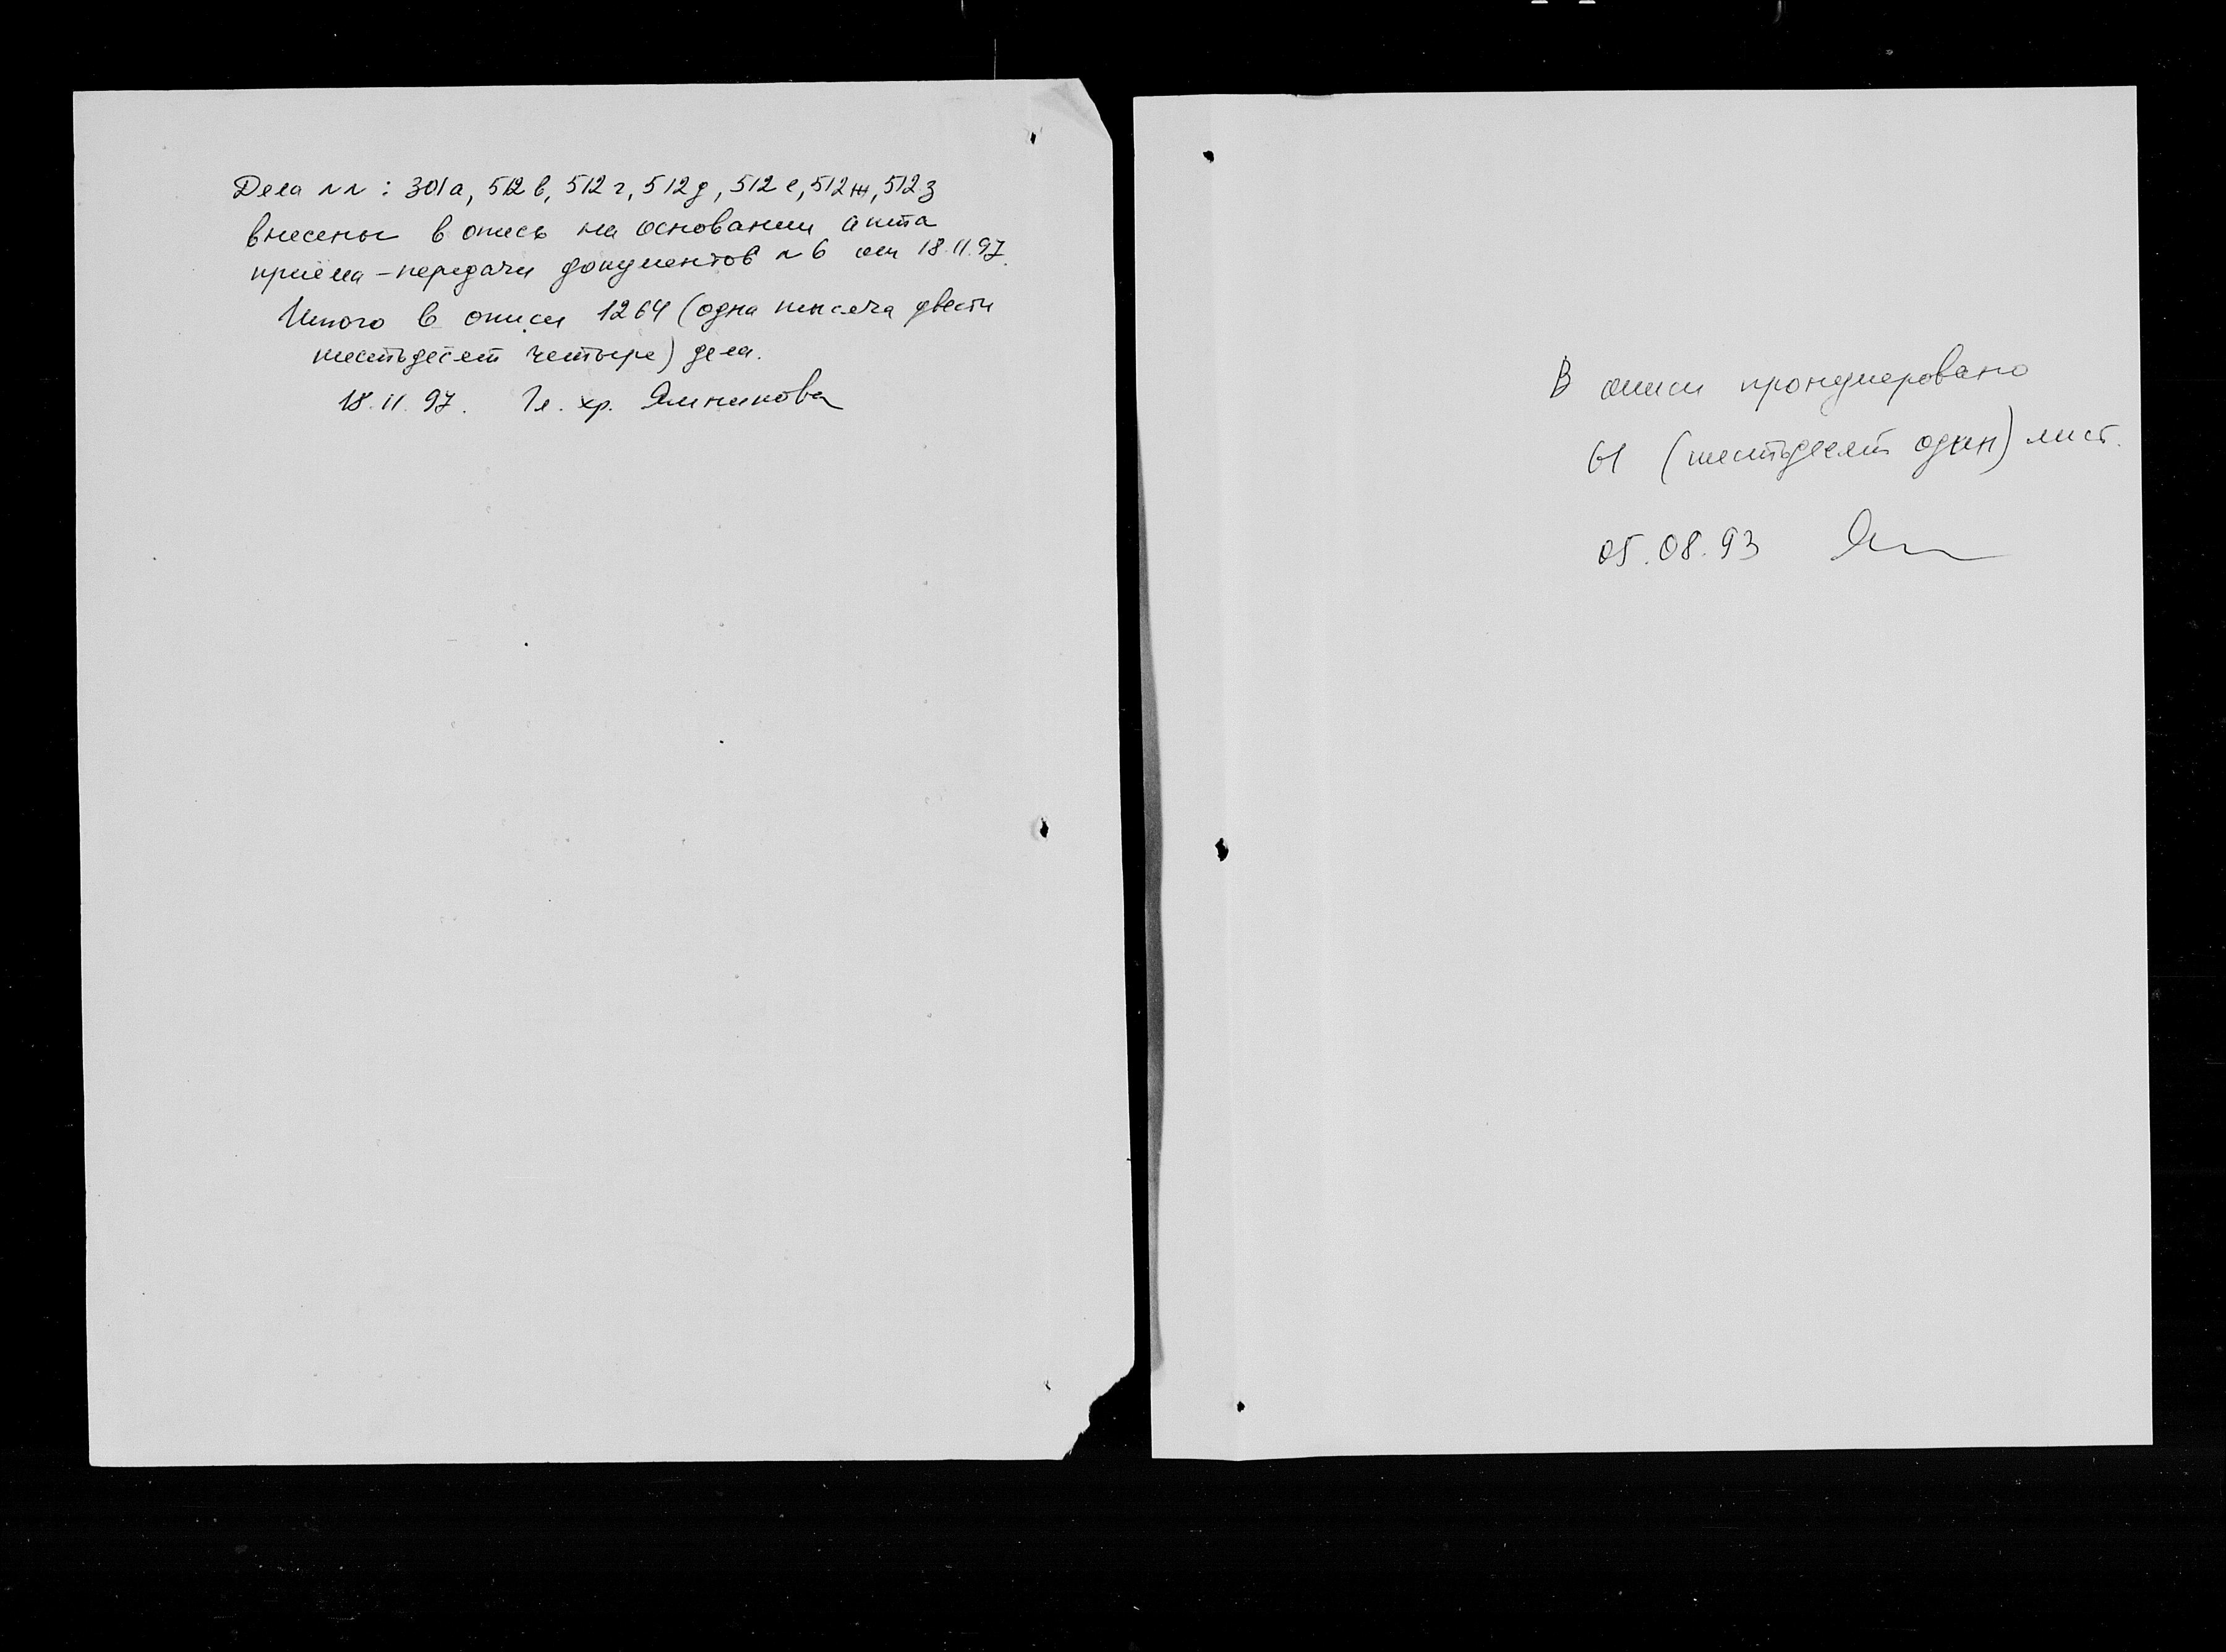 Дела №№: 301а, 512в, 512г, 512д, 512е, 512ж, 512з
внесены в опись на основании акта
приёма-передачи документов №6 от 18.11.97.
Итого в описи 1264 (одна тысяча двести
шестьдесят четыре) дела.
18.11.97. Гл. хр.
В описи пронумеровано
61 (шестьдесят один) лист.
05.08.93